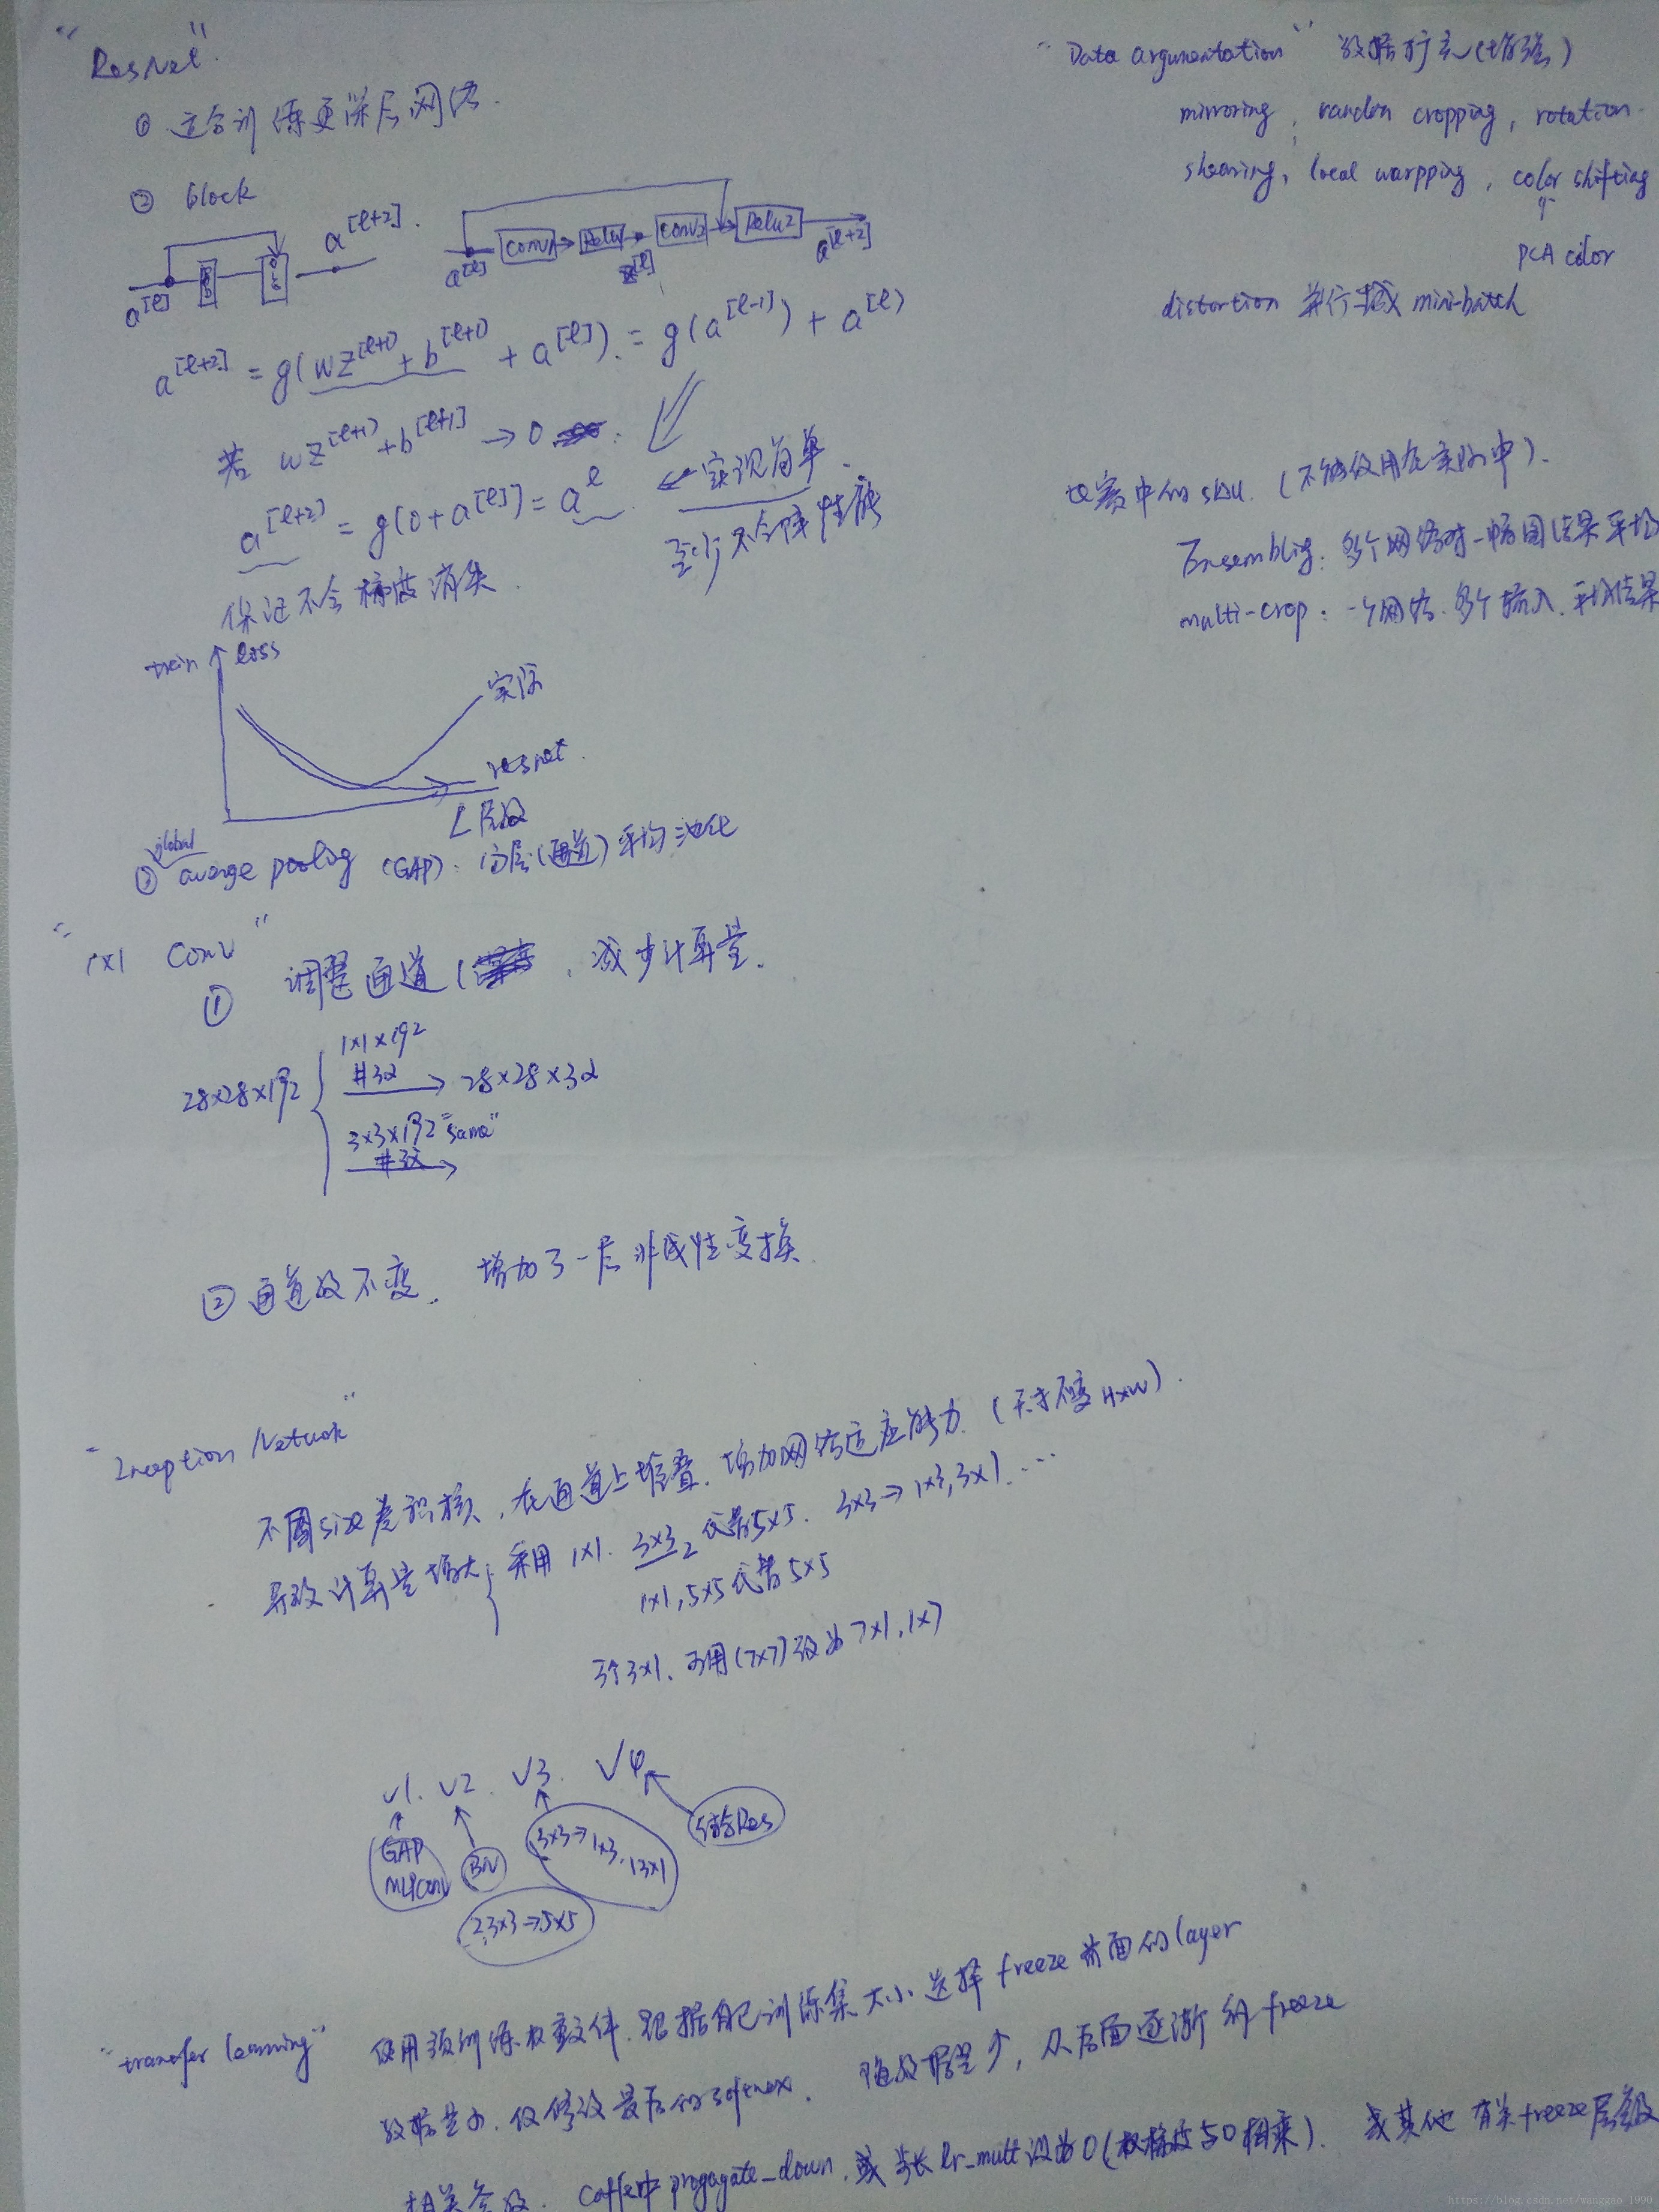 "ResNet"
① 适合训练更深层网络.
② block
a[l] a[l+2].
a[l] Conv1 Relu z[l] Conv2 Relu2 a[l+2]
a[l+2] = g(wz[l+1] + b[l+1] + a[l]). = g(a[l-1]) + a[l]
若 wz[l+1] + b[l+1] → 0
a[l+2] = g(0 + a[l]) = a^l ← 实现简单.
至少不会降性能
保证不会梯度消失.
train loss
实际
resnet.
层数
③ global average pooling (GAP). 每层(通道)平均池化
"1×1 Conv"
① 调整通道 , 减少计算量.
28×28×192
1×1×192
#32
28×28×32
3×3×192 "same"
#32
② 通道数不变. 增加了一层非线性变换.
"Inception Network"
不同size卷积核, 在通道上堆叠. 增加网络适应能力. (尺寸不变 H×W).
导致计算量增大; 采用 1×1. 3×3 2 代替5×5. 3×3→1×3, 3×1. ...
1×1, 5×5 代替 5×5
3个3×1、可用(7×7)改为 7×1, 1×7
V1. V2. V3. V4
GAP
MLPconv
BN
3×3→1×3. 13×1
结合Res
2.3×3→5×5
"transfer learning" 使用预训练权重文件. 根据自己训练集大小选择 freeze 前面的layer
数据量小. 仅修改最后的softmax. 随数据量少, 从后面逐渐 freeze
相关参数. caffe中 progagate_down. 或 lr_mult 设为0(权梯度与0相乘). 或其他有关freeze层级
"Data argumentation" 数据扩充(增强)
mirroring, random cropping, rotation.
shearing, local warpping, color shifting
↑
PCA color
distortion 并行 mini-batch
比赛中的 (不能使用在实际中).
Ensembling: 多个网络对一幅图结果平均
multi-crop: 一个网络. 多个输入. 平均结果
https://blog.csdn.net/wangzao_1990